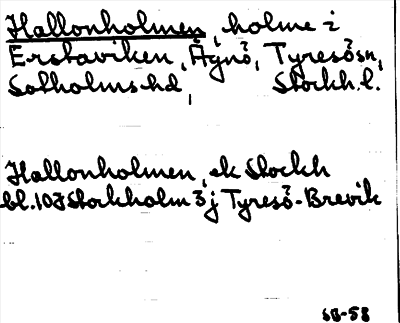 Hallonholmen, holme i
Erstaviken, Ägnö, Tyresö sn,
Sotholms hd, Stockh. l.
Hallonholmen, ek Stockh
bl. 10J Stockholm 3j Tyresö-Brevik
SB-58